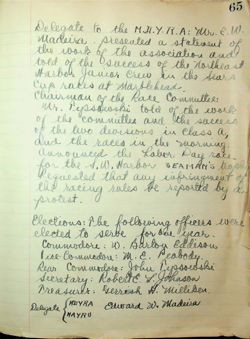 65
Delegate to the M.H.Y.R.A: Mr. E. W.
Madeira: presented a statement of
the work of the association and
told of the success of the Northeast
Harbor Junior Crew in the Sears
Cup races at Marblehead.
Chairman of the Race Committee:
Mr. told of the work
of the committee and the success
of the two divisions in Class A,
and the races in the morning.
Announced the Labor Day race
for the S.W. Harbor SEAMAN'S
requested that any infringement of
the racing rules be reported by a
protest.
Elections: The following officers were
elected to serve for one year.
Commodore: W. Barton Eddison
Vice Commodore: M. E. Peabody
Rear Commodore: John
Secretary: Robert E. L. Johnson
Treasurer: Gerrish H. Milliken
Delegate Edward W. Madeira